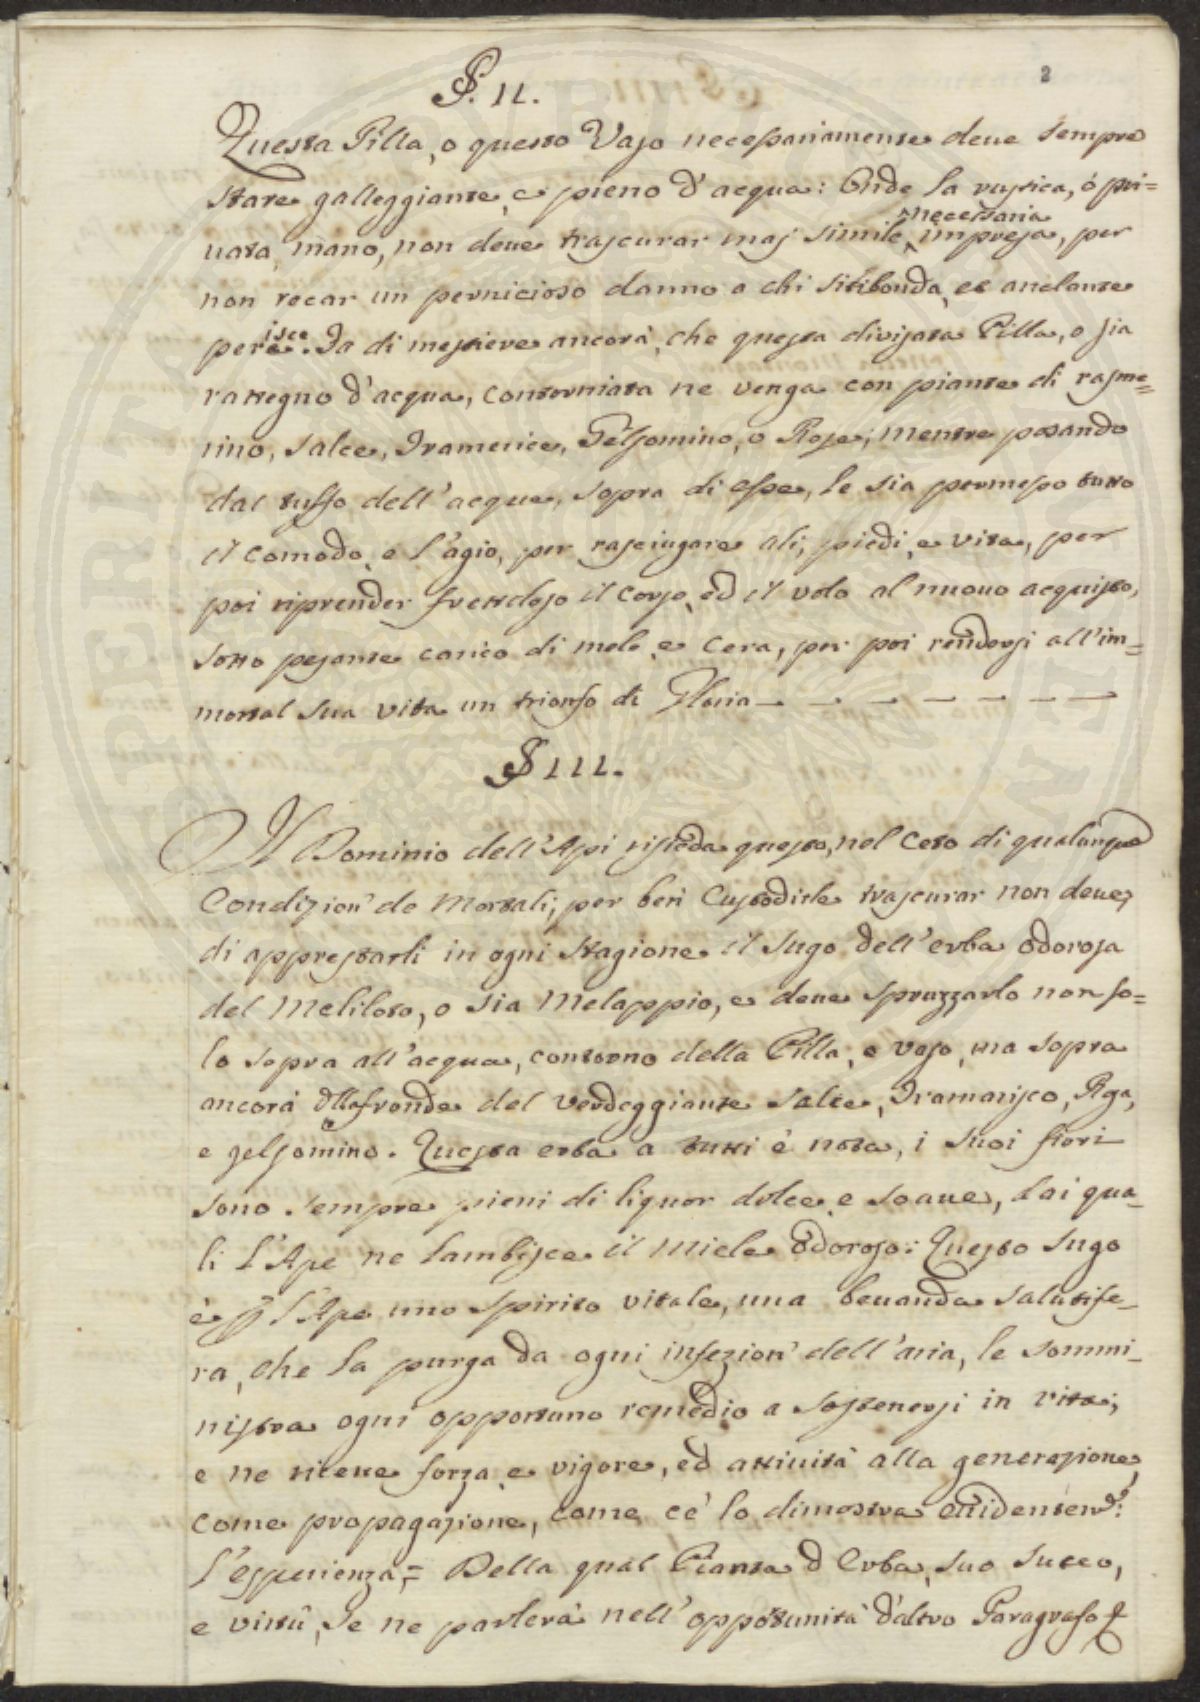 2
§. II.
Questa Pilla, o questo Vaso necessariamente deue sempre
stare galleggiante, e pieno d'acqua: Onde la rustica, ò pri=
uata mano, non deue trascurar maj simile necessaria impresa, per
non recar un pernicioso danno a chi sitibonda, ee anelante
perisce. Fa di mestiere ancorà, che questa divisata Pilla, o sia
rattegno d'acqua, contorniata ne venga con piante di rasme=
rino, Salce, Tramerice, Gelsomino, o Rose; mentre posando
dal tuffo dell'acque, sopra di esse, le sia permesso tutto
il comodo, e l'agio, per rasciugare ali, piedi, e vita, per
poi riprender frettoloso il corso, ed il volo al nuouo acquisto,
sotto pesante carico di mele, e Cera, per poi rendersi all'im=
mortal sua vita un trionfo di Gloria — — — — — — —
§ III.
Il Dominio dell'Api risieda questo, nel Ceto di qualunque
Condizion' de Mortali, per ben Custodirle trascurar non deue,
di apprestarli in ogni Stagione il Sugo dell'erba Odorosa
del Meliloto, o sia Melappio, e deue Spruzzarlo non so=
lo sopra all'acqua, contorno della Pilla, o vaso, ma sopra
ancorà dlla fronde del Verdeggiante Salce, Tramarisco, Rosa,
e gelsomino. Questa erba a tutti è nota, i suoi fiori
sono sempre pieni di liquor dolce, e soaue, dai qua=
li l'Ape ne lambisce il Miele Odoroso: Questo Sugo
è p l'Ape uno Spirito vitale, una beuanda salutife=
ra, che la purga da ogni infezion' dell'aria, le sommi=
nistra ogni opportuno remedio a sostenersi in vita;
e ne riceue forza, e vigore, ed attiuità alla generazione,
come propagazione, come cè lo dimostra euidentem.te:
l'esperienza,= Della qual Pianta d Erba, suo Succo,
e virtù, Se ne parlerà nell'opportunità d'altro Paragrafo